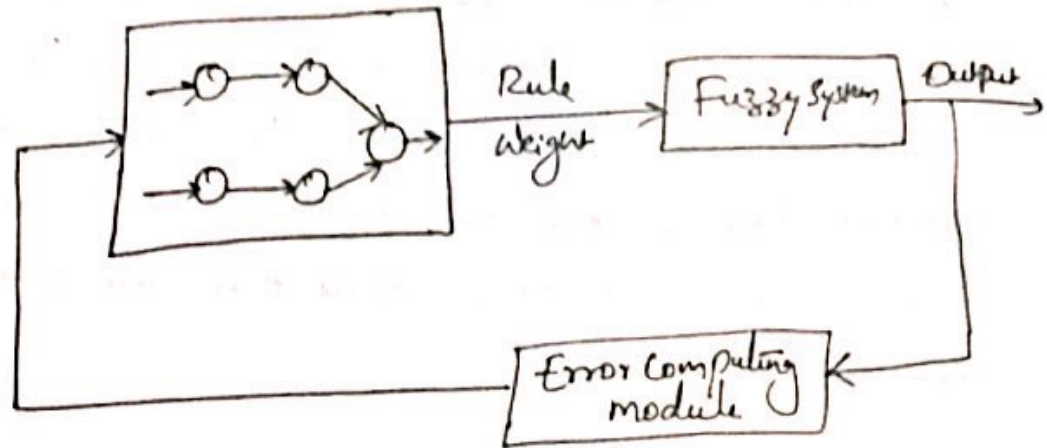 Rule
Weight
Fuzzy System
Output
Error Computing
module